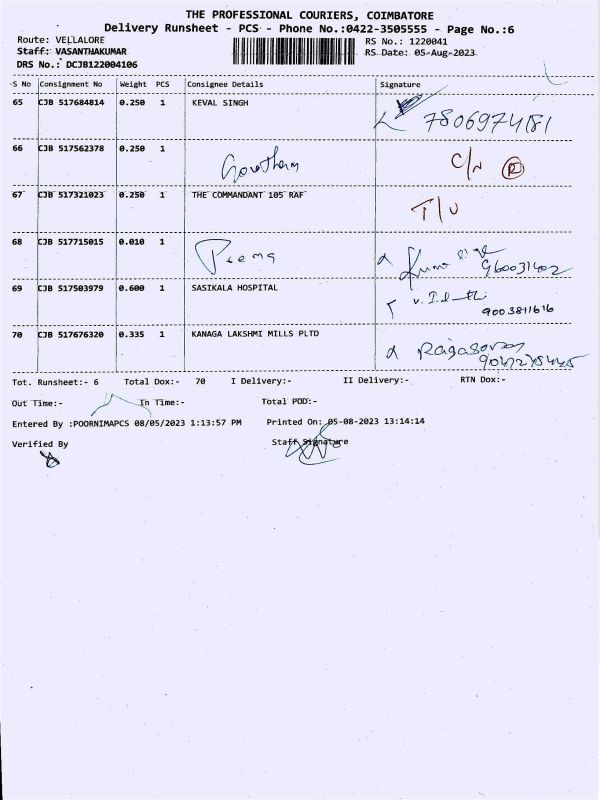 THE PROFESSIONAL COURIERS, COIMBATORE
Delivery Runsheet - PCS - Phone No.:0422-3505555 - Page No.:6
Route: VELLALORE
RS No.: 1220041
Staff: VASANTHAKUMAR
RS Date: 05-Aug-2023
DRS No.: DCJB122004106
S No Consignment No Weight PCS Consignee Details Signature
65 CJB 517684814 0.250 1 KEVAL SINGH
7806974181
66 CJB 517562378 0.250 1 Gowtham C/N R
67 CJB 517321023 0.250 1 THE COMMANDANT 105 RAF T/U
68 CJB 517715015 0.010 1 Prema
960031402
69 CJB 517503979 0.600 1 SASIKALA HOSPITAL
9003811616
70 CJB 517676320 0.335 1 KANAGA LAKSHMI MILLS PLTD
Tot. Runsheet:- 6 Total Dox:- 70 I Delivery:- II Delivery:- RTN Dox:-
Out Time:- In Time:- Total POD:-
Entered By :POORNIMAPCS 08/05/2023 1:13:57 PM Printed On: 05-08-2023 13:14:14
Verified By Staff Signature